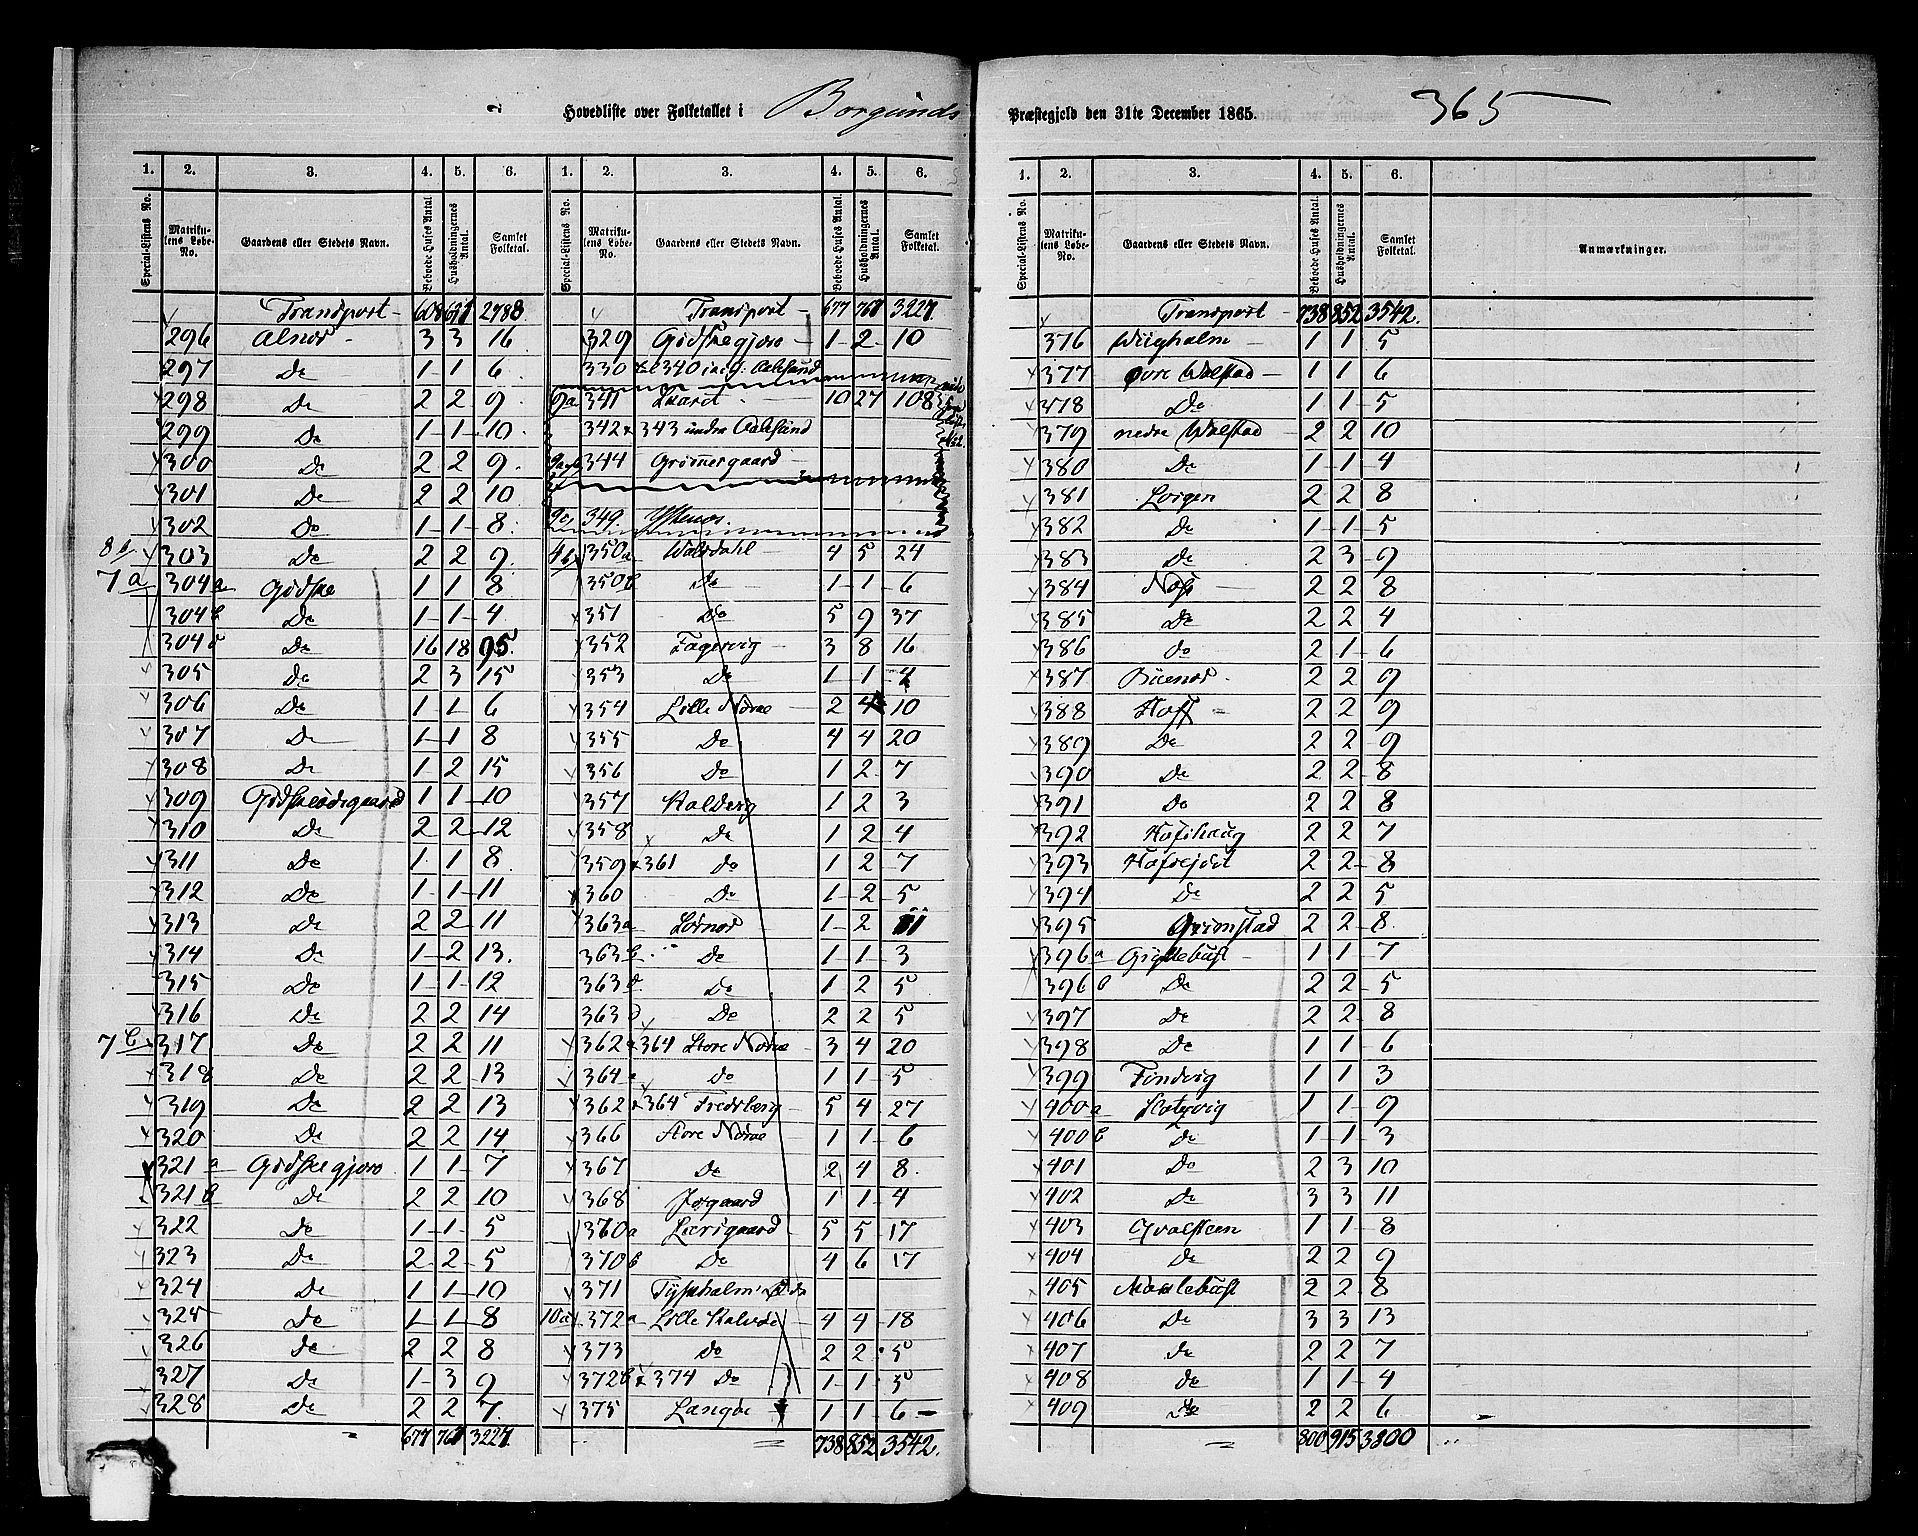 Hovedliste over Folketallet i Borgunds Præstegjeld den 31te December 1865. 365
1. 2. 3. 4. 5. 6. 1. 2. 3. 4. 5. 6.
Special-Listens No. Matrikulens Løbe-No. Gaardens eller Stedets Navn. Beboede Huses Antal. Husholdningernes Antal. Samlet Folketal. Special-Listens No. Matrikulens Løbe-No. Gaardens eller Stedets Navn. Beboede Huses Antal. Husholdningernes Antal. Samlet Folketal.
Transport 608 691 2988
296 Alnes 3 3 16
297 Do 1 1 6
298 Do 2 2 9
299 Do 1 1 10
300 Do 2 2 9
301 Do 2 2 10
302 Do 1 1 8
8b 303 Do 2 2 9
7a 304a Godske 1 1 8
304b Do 1 1 4
304c Do 16 18 95
305 Do 2 3 15
306 Do 1 1 6
307 Do 1 1 8
308 Do 1 2 15
309 Godskesødegaard 1 1 10
310 Do 2 2 12
311 Do 1 1 8
312 Do 1 1 11
313 Do 2 2 11
314 Do 1 2 13
315 Do 1 1 12
316 Do 2 2 14
7b 317 Do 2 2 11
318 Do 2 2 13
319 Do 2 2 13
320 Do 2 2 14
321a Godskegjøro 1 1 7
321b Do 2 2 10
322 Do 1 1 5
323 Do 2 2 5
324 Do 1 1 10
325 Do 1 1 8
326 Do 2 2 8
327 Do 1 3 9
328 Do 2 2 7
677 761 3227
Transport 677 761 3227
329 Godskegjøro 1 2 10
330 til 340 incl. Aalesund
9a 341 10 27 108
342 & 343 under Aalesund
344 Grimmergaard
9c 349
4b 350a Walsdahl 4 5 24
350b Do 1 1 6
351 Do 5 9 37
352 Fagervig 3 8 16
353 Do 1 1 4
354 Lille Nørve 2 4 10
355 Do 4 4 20
356 Do 1 2 7
357 Kalvevig 1 2 3
358 Do 1 2 4
359 & 361 Do 1 2 7
360 Do 1 2 5
363a 1 2 11
363b Do 1 1 3
363c Do 1 2 5
363d Do 2 2 5
362 & 364 Store Nørve 3 4 20
364 Do 1 1 5
362 & 364 Fredsberg 5 4 27
366 Store Nørve 1 1 6
367 Do 2 4 8
368 1 1 4
370a Lærsgaard 5 5 17
370b Do 4 6 17
371 Tyskholm
10a 372a Lille 4 4 18
373 Do 2 2 5
372b & 374 Do 1 1 5
375 Langøe 1 1 6
738 852 3542
1. 2. 3. 4. 5. 6.
Special-Listens No. Matrikulens Løbe-No. Gaardens eller Stedets Navn. Beboede Huses Antal. Husholdningernes Antal. Samlet Folketal. Anmærkninger.
Transport 738 852 3542
376 Wiigholm 1 1 5
377 øvre Walstad 1 1 6
378 Do 1 1 5
379 nedre Walstad 2 2 10
380 Do 1 1 4
381 Lorgen 2 2 8
382 Do 1 1 5
383 Do 2 3 9
384 2 2 8
385 Do 2 2 4
386 Do 2 1 6
387 Buenes 2 2 9
388 Hoff 2 2 9
389 Do 2 2 9
390 Do 2 2 8
391 Do 2 2 8
392 Hofshaug 2 2 7
393 2 2 8
394 Do 2 2 5
395 Grimstad 2 2 8
396a 1 1 7
396b Do 2 2 5
397 Do 2 2 8
398 Do 1 1 6
399 Findvig 1 1 3
400a 1 1 9
400b Do 1 1 3
401 Do 2 3 10
402 Do 3 3 11
403 Qvalsteen 1 1 8
404 Do 2 2 9
405 2 2 8
406 Do 3 3 13
407 Do 2 2 7
408 Do 1 1 4
409 Do 2 2 6
800 915 3800